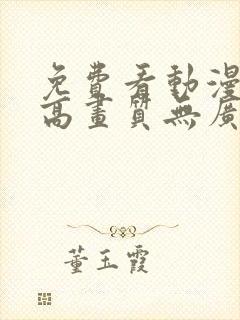 免費看動漫
高畫質無廣
董玉霞